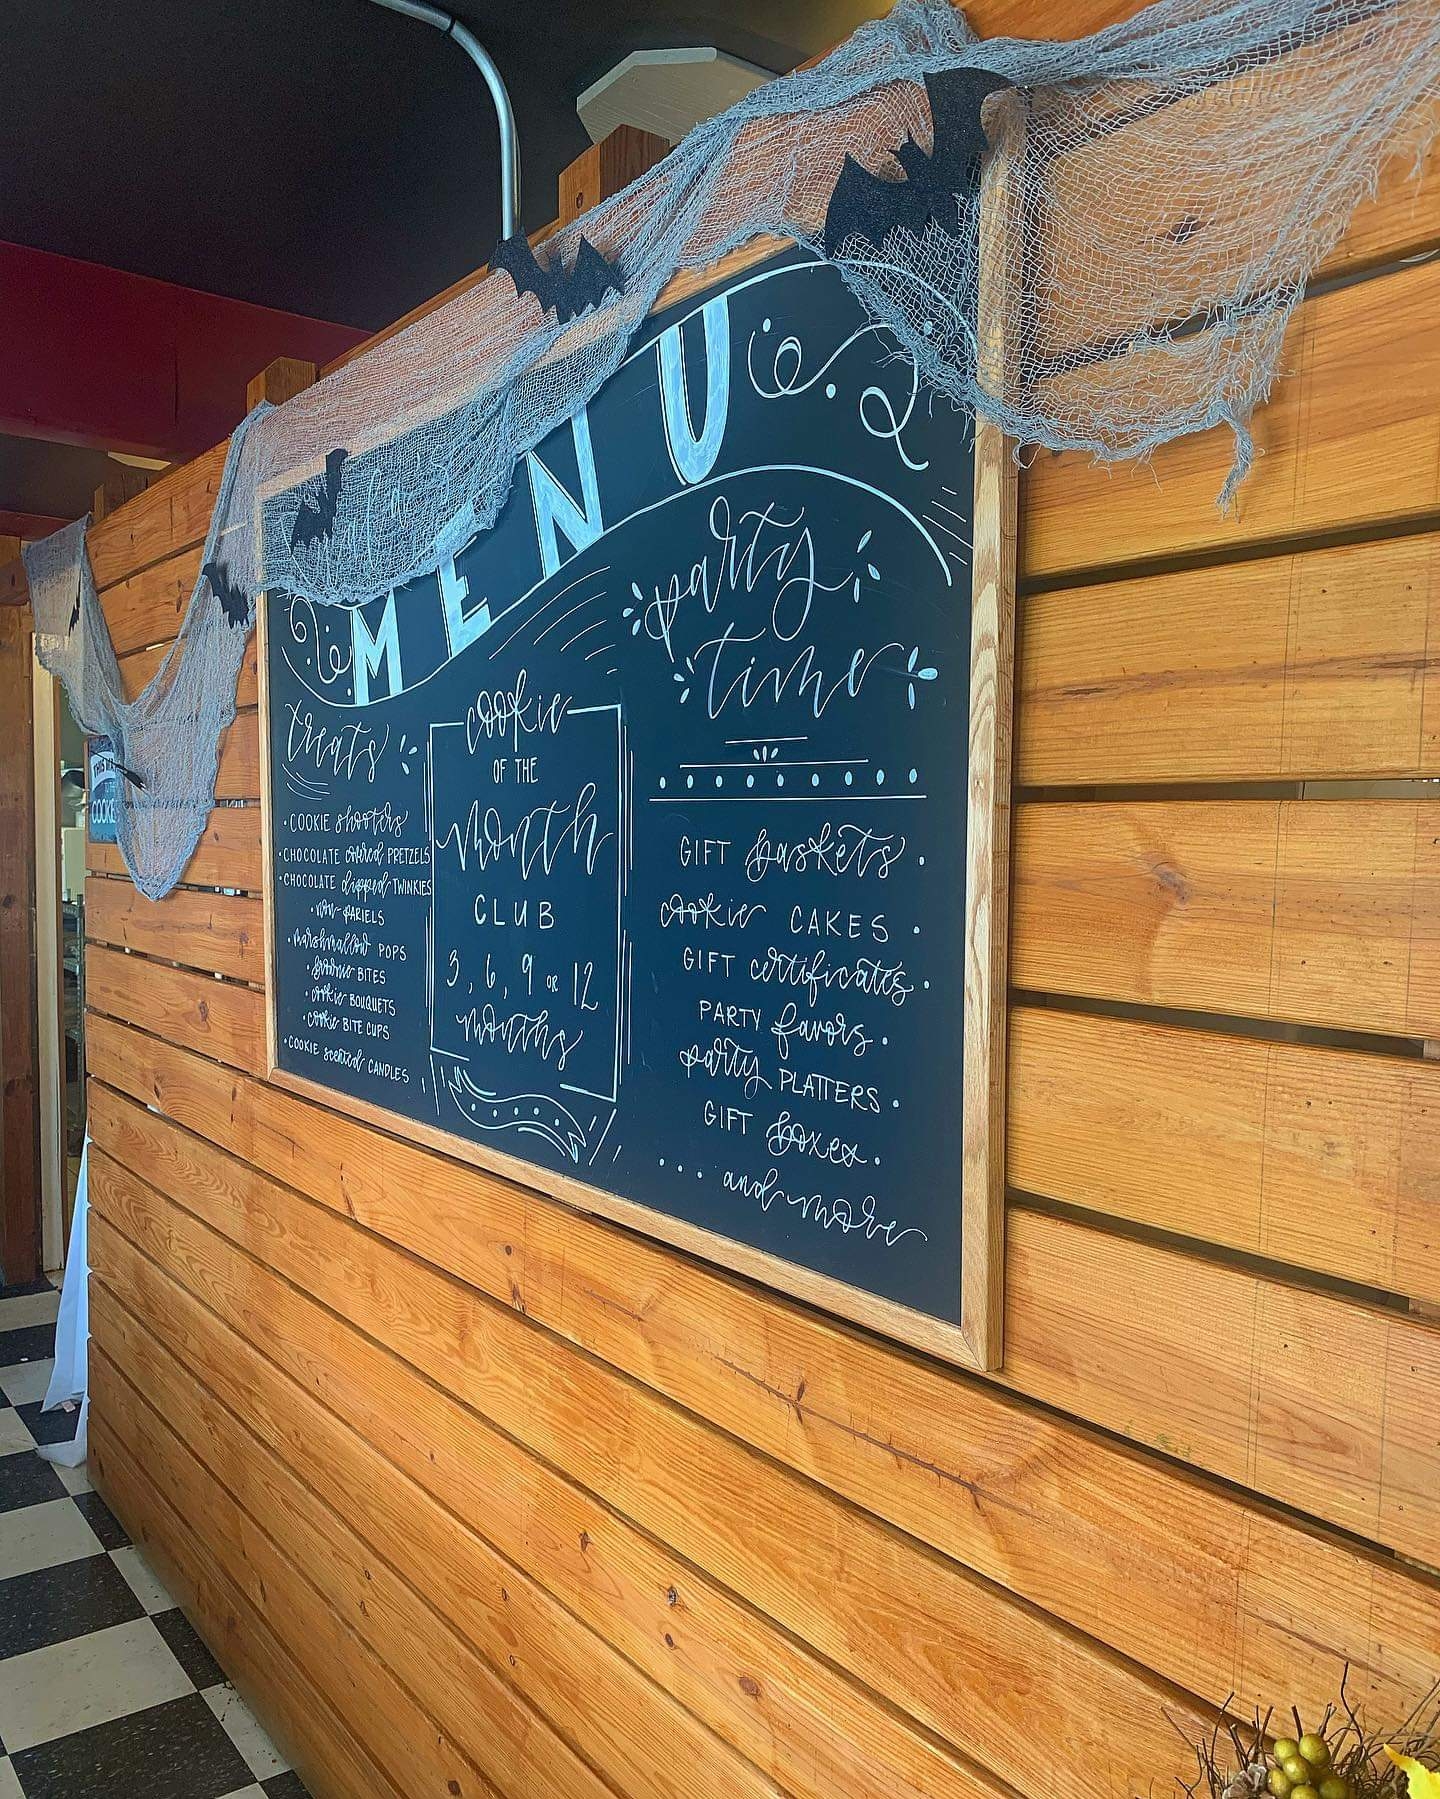 MENU
treats
• COOKIE shooters
• CHOCOLATE covered PRETZELS
• CHOCOLATE dipped TWINKIES
• non-PARIELS
• marshmallow POPS
• brownie BITES
• cookie BOUQUETS
• cookie BITE CUPS
• COOKIE scented CANDLES
cookie
OF THE
month
CLUB
3, 6, 9 OR 12
months
party
time
GIFT baskets •
cookie CAKES •
GIFT certificates •
PARTY favors •
party PLATTERS •
GIFT boxes •
... and more
COOKIE